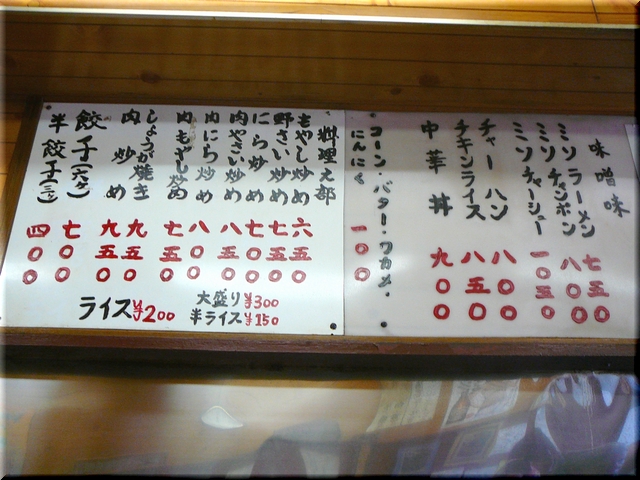 味噌味
ミソラーメン 七五〇
ミソチャンポン 八〇〇
ミソチャーシュー 一〇五〇
チャーハン 八〇〇
チキンライス 八五〇
中華丼 九〇〇
コーン・バター・ワカメ・
にんにく 一〇〇
料理之部
もやし炒め 六五〇
野さい炒め 七五〇
にら炒め 七〇〇
肉やさい炒め 八五〇
肉にら炒め 八〇〇
肉もやし炒め 七五〇
しょうが焼き 九五〇
肉炒め 九五〇
餃子(六ケ) 七〇〇
半餃子(三ツ) 四〇〇
ライス¥200
大盛り¥300
半ライス¥150